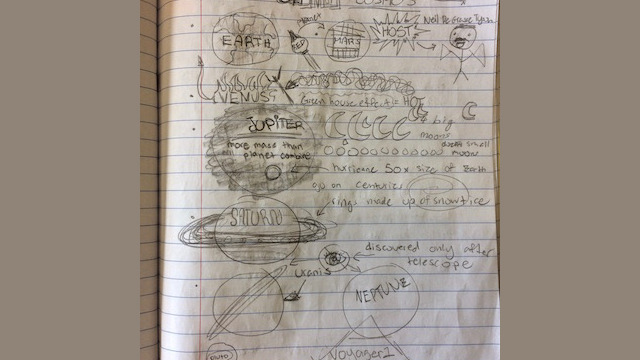 COSMOS
EARTH
MARS
HOST
Neil De Grasse Tyson
VENUS
Green house effect = HOT
JUPITER
more mass than
all planet combine
4 big
moons
dozen small
moon
hurricane 50x size of Earth
on centuries
rings made up of snow + ice
SATURN
discovered only after
telescope
Uranis
NEPTUNE
Voyager 1
PLUTO